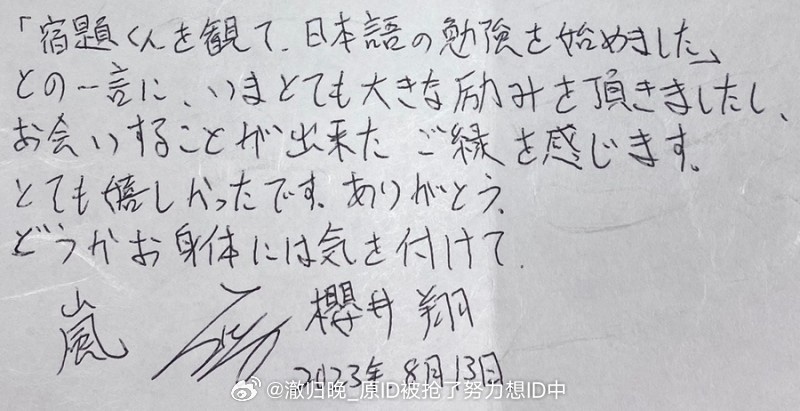 「宿題くんを観て、日本語の勉強を始めました」
との一言に、いまとても大きな励みを頂きましたし、
お会いすることが出来た ご縁を感じます。
とても嬉しかったです。ありがとう。
どうかお身体には気を付けて。
嵐 櫻井翔
2023年8月13日
@澈归晚_原ID被抢了努力想ID中